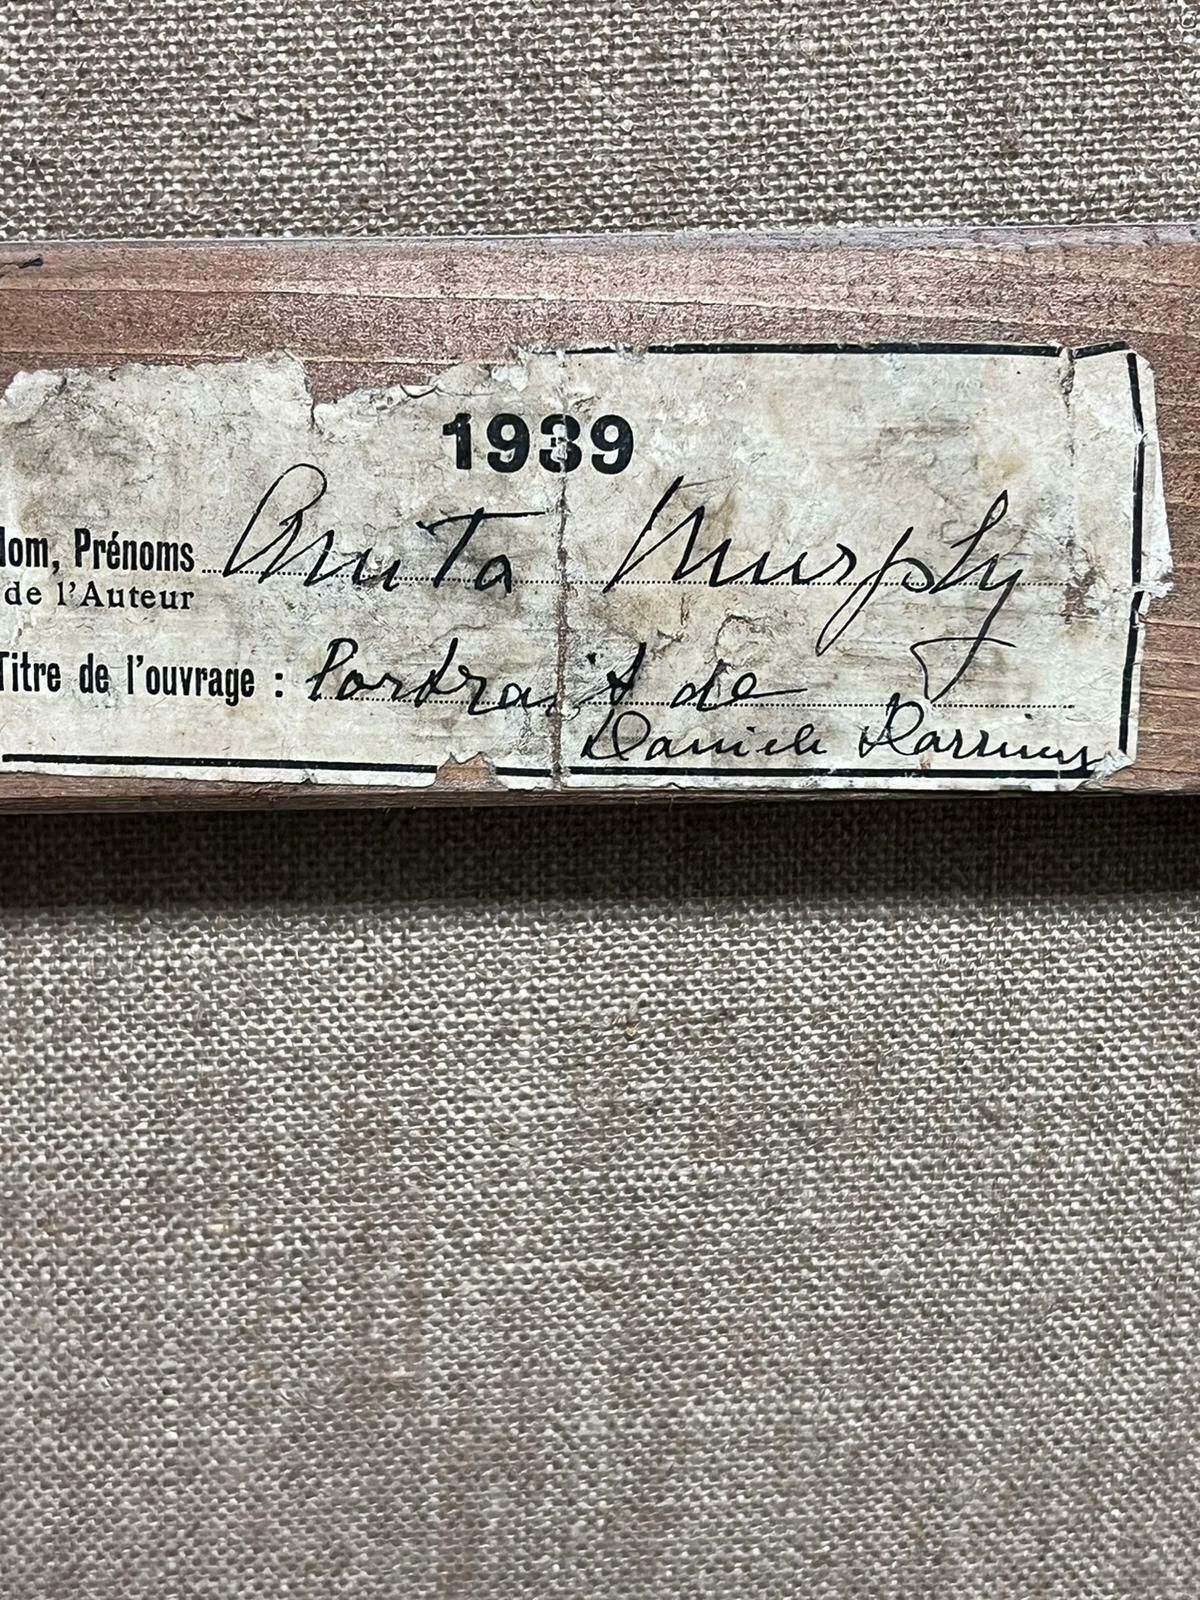 1939
Nom, Prénoms Anita Murphy
de l'Auteur
Titre de l'ouvrage : Portrait de
Daniele Darrieux